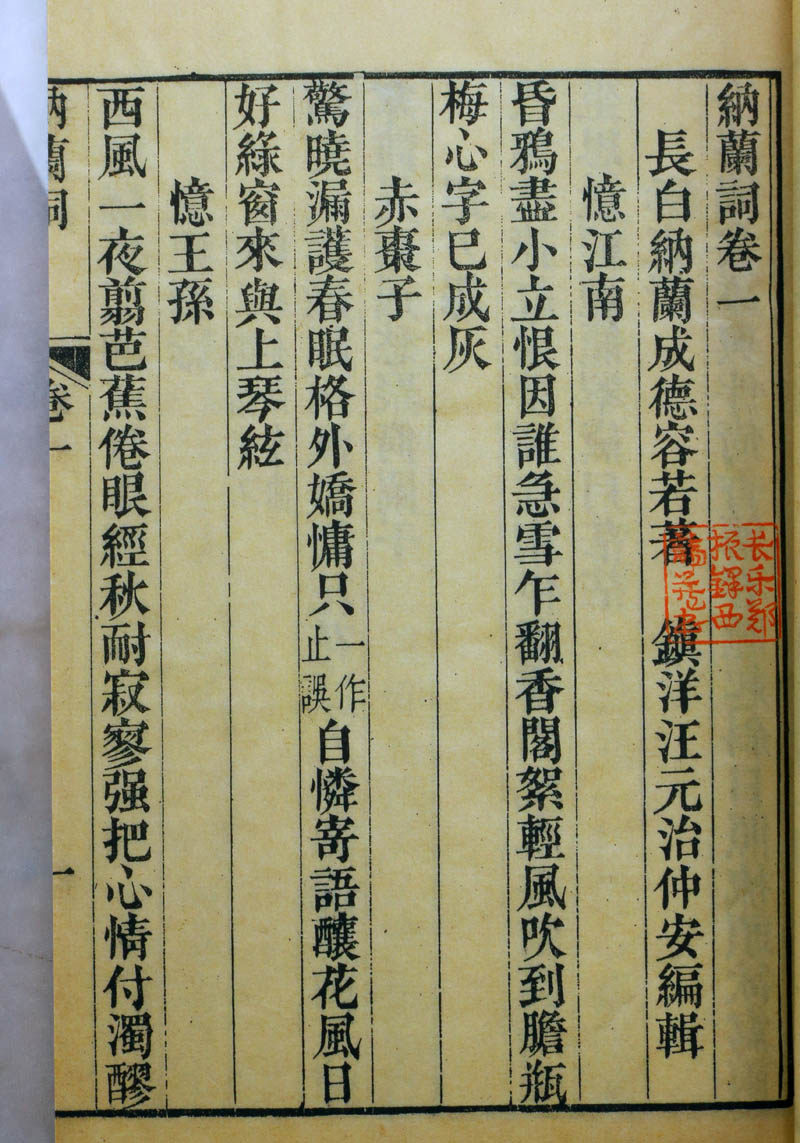 納蘭詞卷一
長白納蘭成德容若著　鎮洋汪元治仲安編輯
長乐郑
振鐸西
諦藏書
憶江南
昏鴉盡小立恨因誰急雪乍翻香閣絮輕風吹到膽瓶
梅心字已成灰
赤棗子
驚曉漏護春眠格外嬌慵只一作止誤自憐寄語釀花風日
好綠窗來與上琴絃
憶王孫
西風一夜翦芭蕉倦眼經秋耐寂寥强把心情付濁醪
納蘭詞
卷一
一